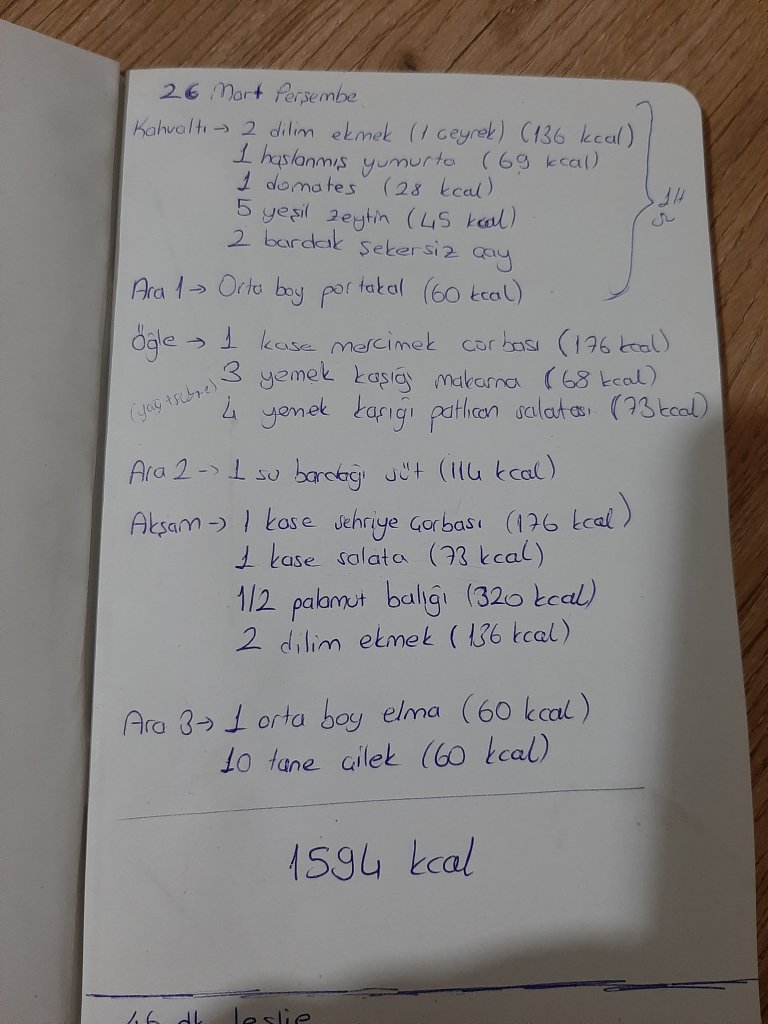 26 Mart Perşembe
Kahvaltı → 2 dilim ekmek (1 ceyrek) (136 kcal)
1 haşlanmış yumurta (69 kcal)
1 domates (28 kcal)
5 yeşil zeytin (45 kcal)
2 bardak şekersiz çay
Ara 1 → Orta boy portakal (60 kcal)
Öğle → 1 kase mercimek corbası (176 kcal)
3 yemek kaşığı makarna (68 kcal)
4 yemek kaşığı patlıcan salatası (73 kcal)
Ara 2 → 1 su bardağı süt (114 kcal)
Akşam → 1 kase şehriye çorbası (176 kcal)
1 kase salata (73 kcal)
1/2 palamut balığı (320 kcal)
2 dilim ekmek (136 kcal)
Ara 3 → 1 orta boy elma (60 kcal)
10 tane çilek (60 kcal)
1594 kcal
46 dk leslie